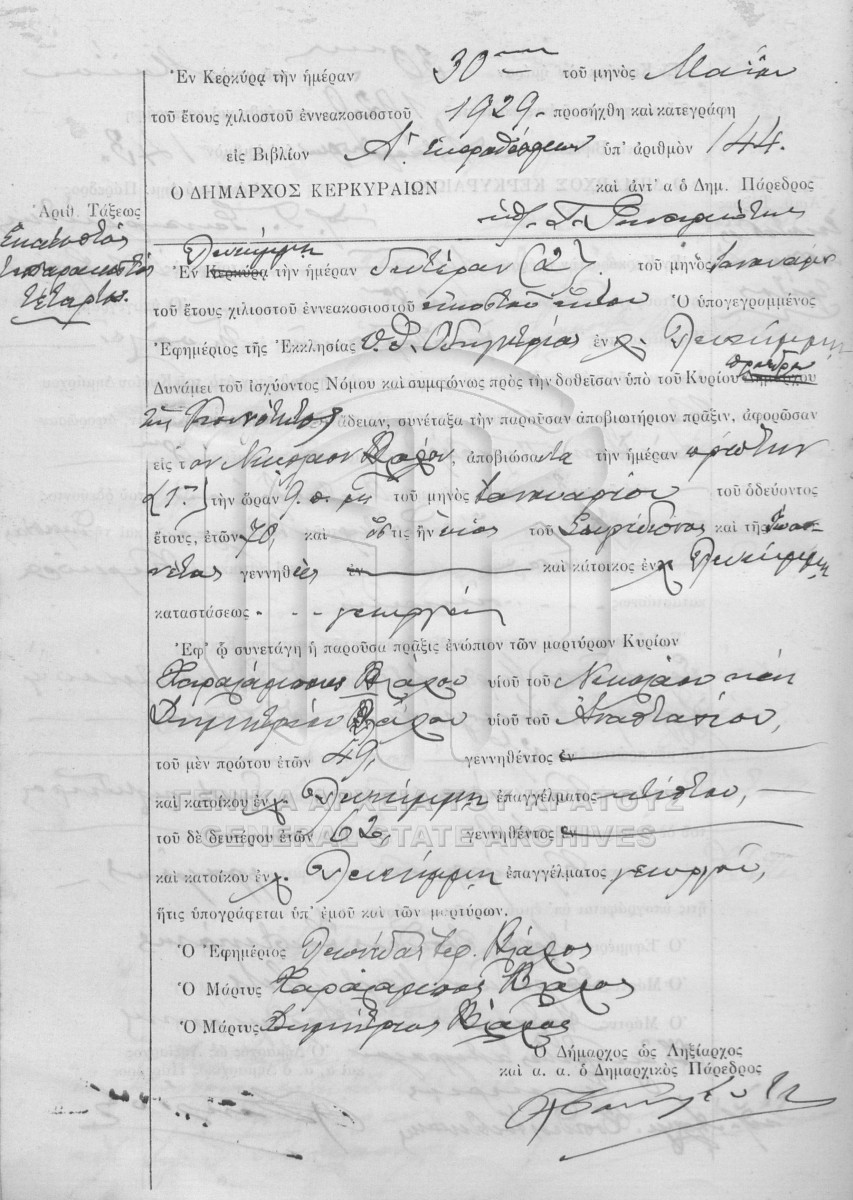 Ἐν Κερκύρᾳ τὴν ἡμέραν 30 τοῦ μηνὸς Μαΐου
τοῦ ἔτους χιλιοστοῦ ἐννεακοσιοστοῦ 1929 - προσήχθη καὶ κατεγράφη
εἰς Βιβλίον Α΄. ὑπ' ἀριθμὸν 144.
Ο ΔΗΜΑΡΧΟΣ ΚΕΡΚΥΡΑΙΩΝ καὶ ἀντ' α ὁ Δημ. Πάρεδρος
Ἀριθ. Τάξεως
Ἑκατοστὸς
τεσσαρακοστὸς
τέταρτος.
Λευκίμμῃ
Ἐν Κερκύρᾳ τὴν ἡμέραν δευτέραν (2) τοῦ μηνὸς Ἰανουαρίου
τοῦ ἔτους χιλιοστοῦ ἐννεακοσιοστοῦ εἰκοστοῦ ἕκτου Ὁ ὑπογεγραμμένος
Ἐφημέριος τῆς Ἐκκλησίας Ὁδηγητρίας ἐν χ. Λευκίμμῃ
Δυνάμει τοῦ ἰσχύοντος Νόμου καὶ συμφώνως πρὸς τὴν δοθεῖσαν ὑπὸ τοῦ Κυρίου Δημάρχου προέδρου
τῆς Κοινότητος ἄδειαν, συνέταξα τὴν παροῦσαν ἀποβιωτήριον πρᾶξιν, ἀφορῶσαν
εἰς τὸν Νικόλαον Βλάχον, ἀποβιώσαντα τὴν ἡμέραν πρώτην
(1ην) τὴν ὥραν 9 π. μ. τοῦ μηνὸς Ἰανουαρίου τοῦ ὁδεύοντος
ἔτους, ἐτῶν 70, καὶ ὅστις ἦν υἱὸς τοῦ Σπυρίδωνος καὶ τῆς Ἰωαν-
νέτας γεννηθεὶς ἐν καὶ κάτοικος ἐν χ. Λευκίμμῃ
καταστάσεως - - - γεωργός
Ἐφ' ᾧ συνετάγη ἡ παροῦσα πρᾶξις ἐνώπιον τῶν μαρτύρων Κυρίων
Χαραλάμπους Βλάχου υἱοῦ τοῦ Νικολάου καὶ
Δημητρίου Βλάχου υἱοῦ τοῦ Ἀναστασίου,
τοῦ μὲν πρώτου ἐτῶν 49, γεννηθέντος ἐν
καὶ κατοίκου ἐν χ. Λευκίμμῃ ἐπαγγέλματος κτίστου, -
ΓΕΝΙΚΑ ΑΡΧΕΙΑ ΤΟΥ ΚΡΑΤΟΥΣ
GENERAL STATE ARCHIVES
τοῦ δὲ δευτέρου ἐτῶν 62, γεννηθέντος ἐν
καὶ κατοίκου ἐν χ. Λευκίμμῃ ἐπαγγέλματος γεωργοῦ,
ἥτις ὑπογράφεται ὑπ' ἐμοῦ καὶ τῶν μαρτύρων.
Ὁ Ἐφημέριος Λεωνίδας ἱερ. Βλάχος
Ὁ Μάρτυς Χαράλαμπος Βλάχος
Ὁ Μάρτυς Δημήτριος Βλάχος
Ὁ Δήμαρχος ὡς Ληξίαρχος
καὶ α. α. ὁ Δημαρχικὸς Πάρεδρος